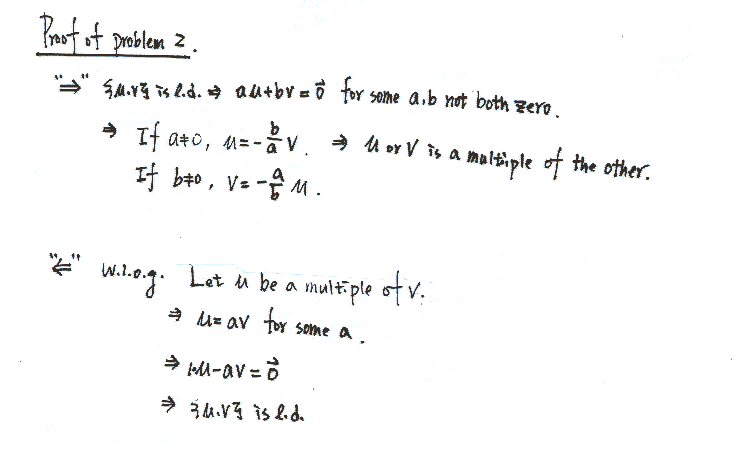 Proof of problem 2.
"⇒" {u.v} is l.d. ⇒ au+bv = 0⃗ for some a,b not both zero.
⇒ If a≠0, u = -b/a v. ⇒ u or v is a multiple of the other.
If b≠0, v = -a/b u.
"⇐" w.l.o.g. Let u be a multiple of v.
⇒ u = av for some a.
⇒ 1·u-av = 0⃗
⇒ {u.v} is l.d.